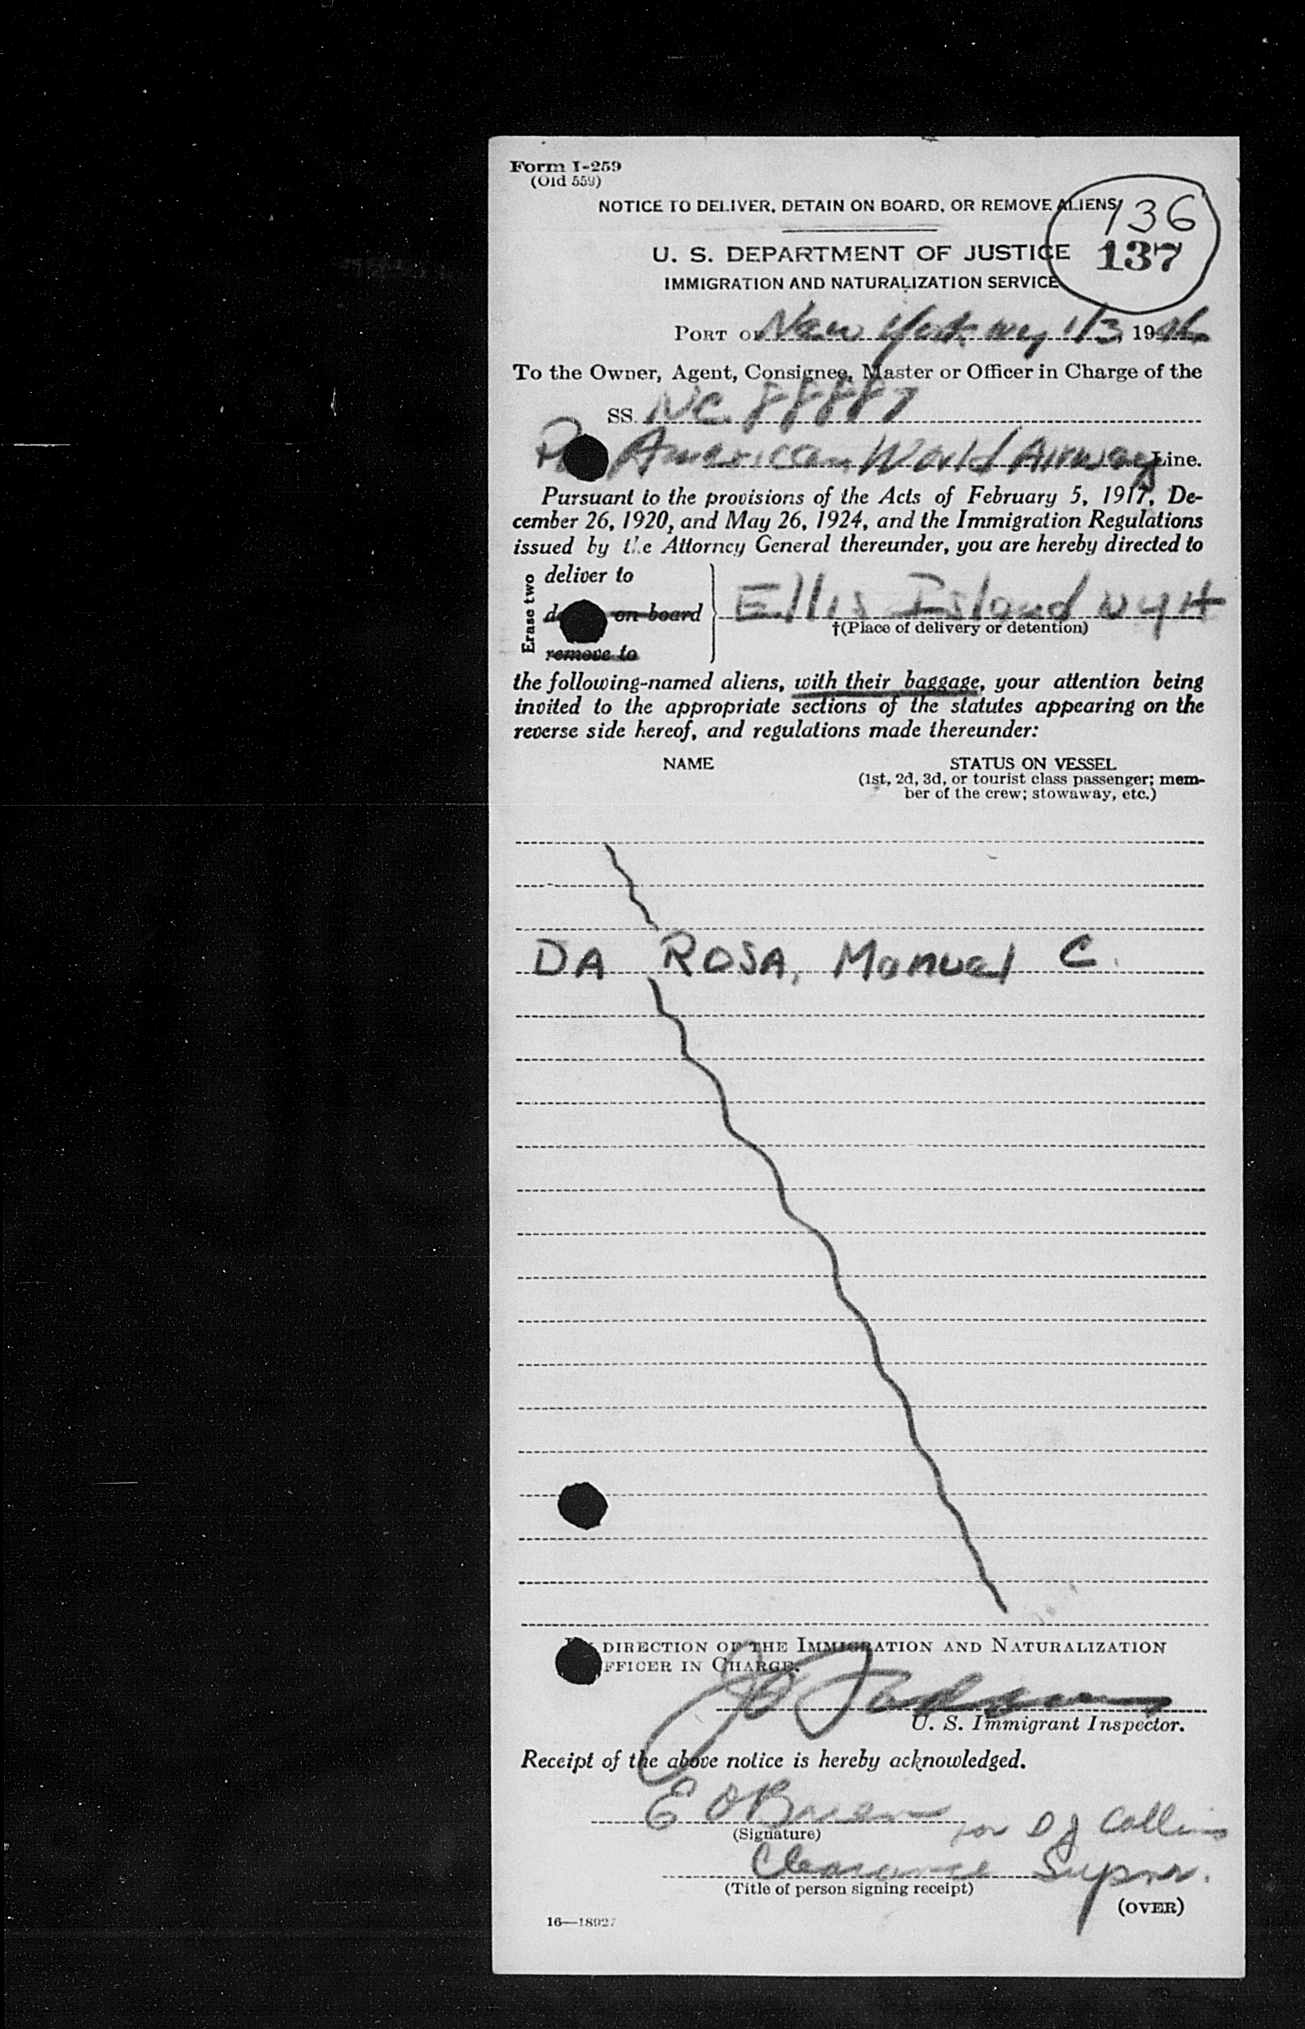 Form I-259
(Old 559)
NOTICE TO DELIVER, DETAIN ON BOARD, OR REMOVE ALIENS
136
137
U. S. DEPARTMENT OF JUSTICE
IMMIGRATION AND NATURALIZATION SERVICE
PORT OF New York NY 1/3, 1946
To the Owner, Agent, Consignee, Master or Officer in Charge of the
SS. NC 88887
American World Airways Line.
Pursuant to the provisions of the Acts of February 5, 1917, De-
cember 26, 1920, and May 26, 1924, and the Immigration Regulations
issued by the Attorney General thereunder, you are hereby directed to
Erase two
deliver to
on board
remove to
Ellis Island NYH
†(Place of delivery or detention)
the following-named aliens, with their baggage, your attention being
invited to the appropriate sections of the statutes appearing on the
reverse side hereof, and regulations made thereunder:
NAME STATUS ON VESSEL
(1st, 2d, 3d, or tourist class passenger; mem-
ber of the crew; stowaway, etc.)
DA ROSA, Manuel C.
DIRECTION OF THE IMMIGRATION AND NATURALIZATION
FFICER IN CHARGE.
U. S. Immigrant Inspector.
Receipt of the above notice is hereby acknowledged.
E OBrien for D J Collins
(Signature)
Clearance Supvr.
(Title of person signing receipt)
(OVER)
16—18927